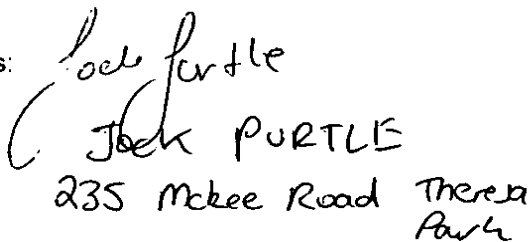 s:
Jock Purtle
JOCK PURTLE
235 Mckee Road Theresa
Park